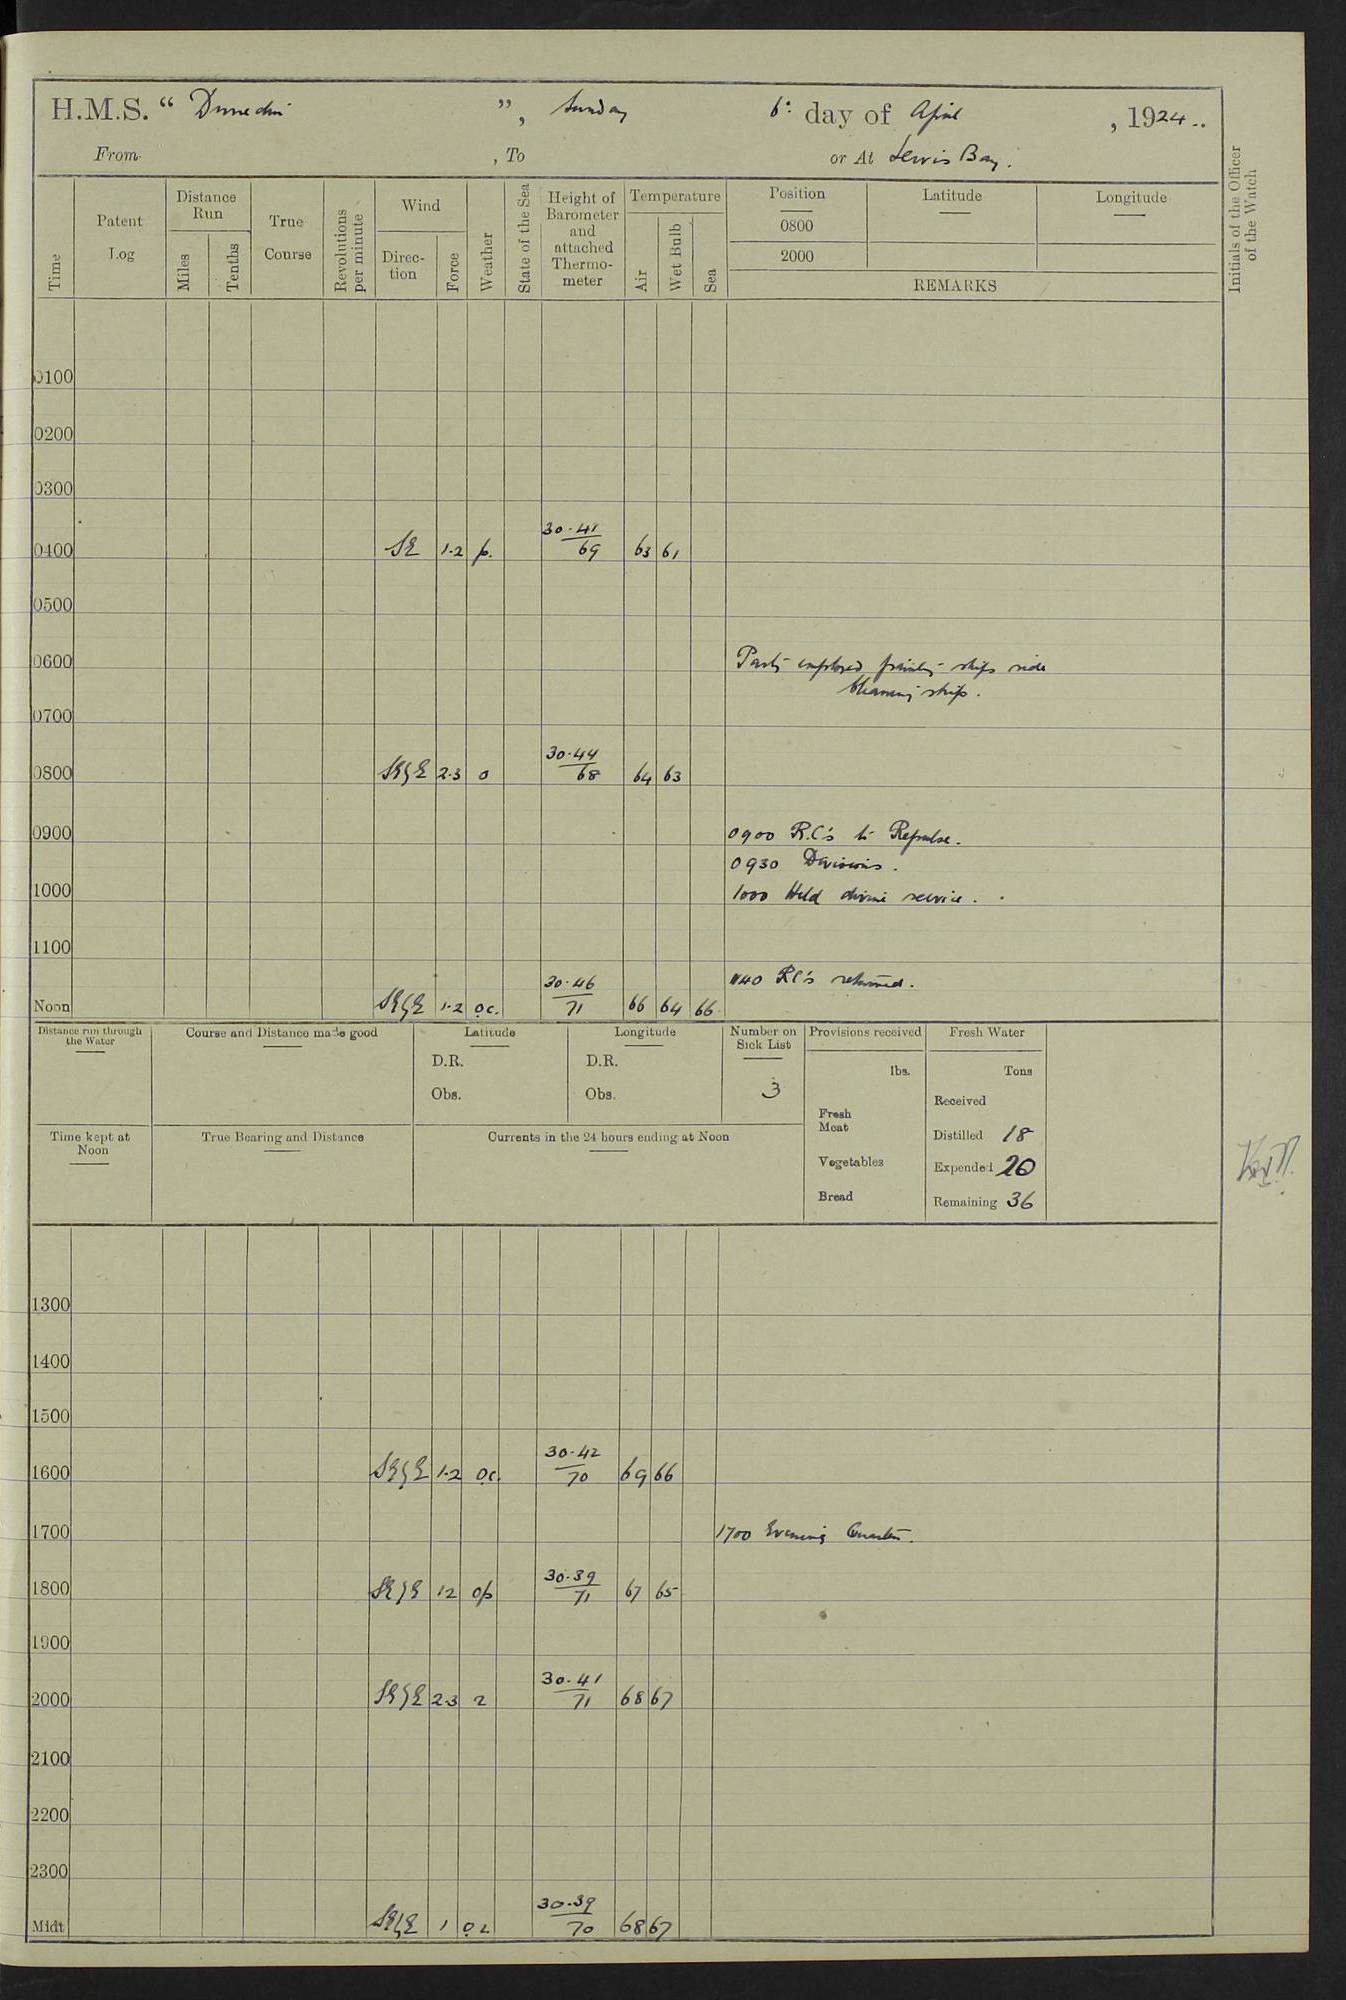 H.M.S. “ Dunedin ”, Sunday 6th day of April , 1924.
From , To or At Jervis Bay.
Time
Patent Log
Distance Run
Miles
Tenths
True Course
Revolutions per minute
Wind
Direction
Force
Weather
State of the Sea
Height of Barometer and attached Thermometer
Temperature
Air
Wet Bulb
Sea
Position
0800
2000
Latitude
Longitude
REMARKS
Initials of the Officer of the Watch
0100
0200
0300
0400 SE 1-2 p. 30.41 69 63 61
0500
0600 Party employed painting ships side
& cleaning ship.
0700
0800 SE 2-3 o 30.44 68 64 63
0900 0900 R.C's to Repulse.
0930 Divisions.
1000 1000 Held divine service.
1100
1140 RC's returned.
Noon 1-2 oc. 30.46 71 66 64 66
Distance run through the Water
Course and Distance made good
Latitude
D.R.
Obs.
Longitude
D.R.
Obs.
Number on Sick List
3
Provisions received
lbs.
Fresh Meat
Vegetables
Bread
Fresh Water
Tons
Received
Distilled 18
Expended 20
Remaining 36
Time kept at Noon
True Bearing and Distance
Currents in the 24 hours ending at Noon
1300
1400
1500
1600 1-2 oc. 30.42 70 69 66
1700 1700 Evening Quarters.
1800 1 2 op 30.39 71 67 65
1900
2000 2-3 30.41 71 68 67
2100
2200
2300
Midt 1 30.39 70 68 67